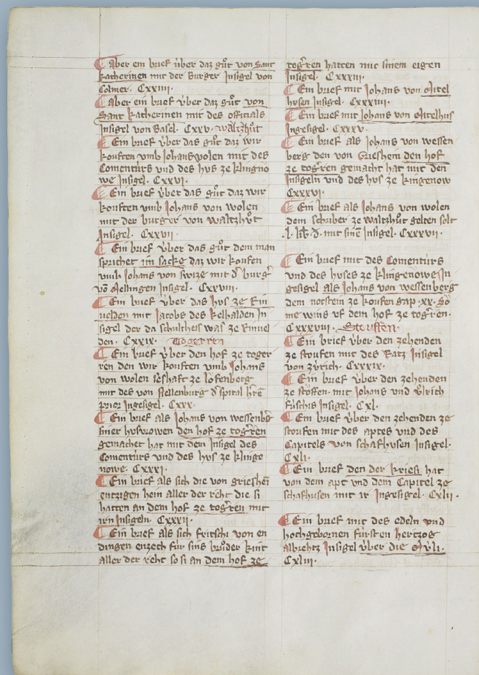 Aber ein brief über daz gůt von Sant
katherinen mit der Burger Insigel von
Colmer. Cxxiiii
Aber ein brief v̓ber daz gůt von
Sant katherinen mit des officials
Insigel von Basel. Cxxv. waltzhůt
Ein brief v̓ber daz gůt daz wir
kouften vmb Johans wolen mit des
Comenturs vnd des hvs ze klingno
we Insigel. Cxxvi.
Ein brief v̓ber daz gůt daz wir
kouften vmb Johans von wolen
mit der burger von waltzhůt
Insigel. Cxxvii
Ein brief v̓ber daz gůt dem man
sprichet im sacke daz wir koufen
vmb Johans von switze mit d burg
vō Mellingen Insigel. Cxxviii.
Ein brief v̓ber daz hvs ze Rin
uelden mit Jacobs des kelhalden In
sigel der da schultheis waz ze Rinuel
den. Cxxix. Togerren
Ein brief v̓ber den hof ze toger
ren den wir kouften vmb Johans
von wolen seshaft ze Lofenberg
mit des von stellenburg
prior Ingesigel. Cxxx.
Ein brief als Johans von wessenbg
siner hofvrowen den hof ze togrren
gemachet hat mit dem Insigel des
Comenturs vnd des hvs ze klinge
nowe. Cxxxi.
Ein brief als sich die von griesheī
entzigen hein aller der reht die si
hatten an dem hof ze togrren mit
irn Insigeln. Cxxxii.
Ein brief als sich fritschi von en
dingen enzech für sins brůder kint
aller der reht so si an dem hof ze
togrren hatten mit sinem eigen
Insigel. Cxxxiii.
Ein brief mit Johans von Mitel
husen Insigel. Cxxxiiii.
Ein brief mit Johans von Mitelhus
Ingesigel. Cxxxv.
Ein brief als Johans von wessen
berg den von Griesheim den hof
ze togrren gemachet hat mit den
Insigeln vnd des hvs ze klingenow
Cxxxvi.
Ein brief als Johans von wolen
dem schriber ze waltzhůt gelten solt
mit sinē Insigel. Cxxxvii.
Ein brief mit des Comenturs
vnd des huses ze klingenowe In
gesigel als Johans von wessenberg
dem nortstein ze koufen gap .xx. So
me wins vf dem hof ze togrren.
Cxxxviii. Struffen.
Ein brief über den zehenden
ze stoufen mit des Ratz Insigel
von zürich. Cxxxix.
Ein brief über den zehenden
ze stoffen mit Johans vnd Vlrich
fütschis Insigel. Cxl.
Ein brief v̓ber den zehenden ze
stoufen mit des aptes vnd des
Capitels von schafhusen Insigel.
Cxli.
Ein brief den der kriesi hat
von dem apt vnd dem Capitel ze
schafhusen mit ir Ingesigel. Cxlii.
Ein brief mit des edeln vnd
hochgebornen fürsten hertzog
albrehtz Insigel v̓ber die Mv̓li.
Cxliii.